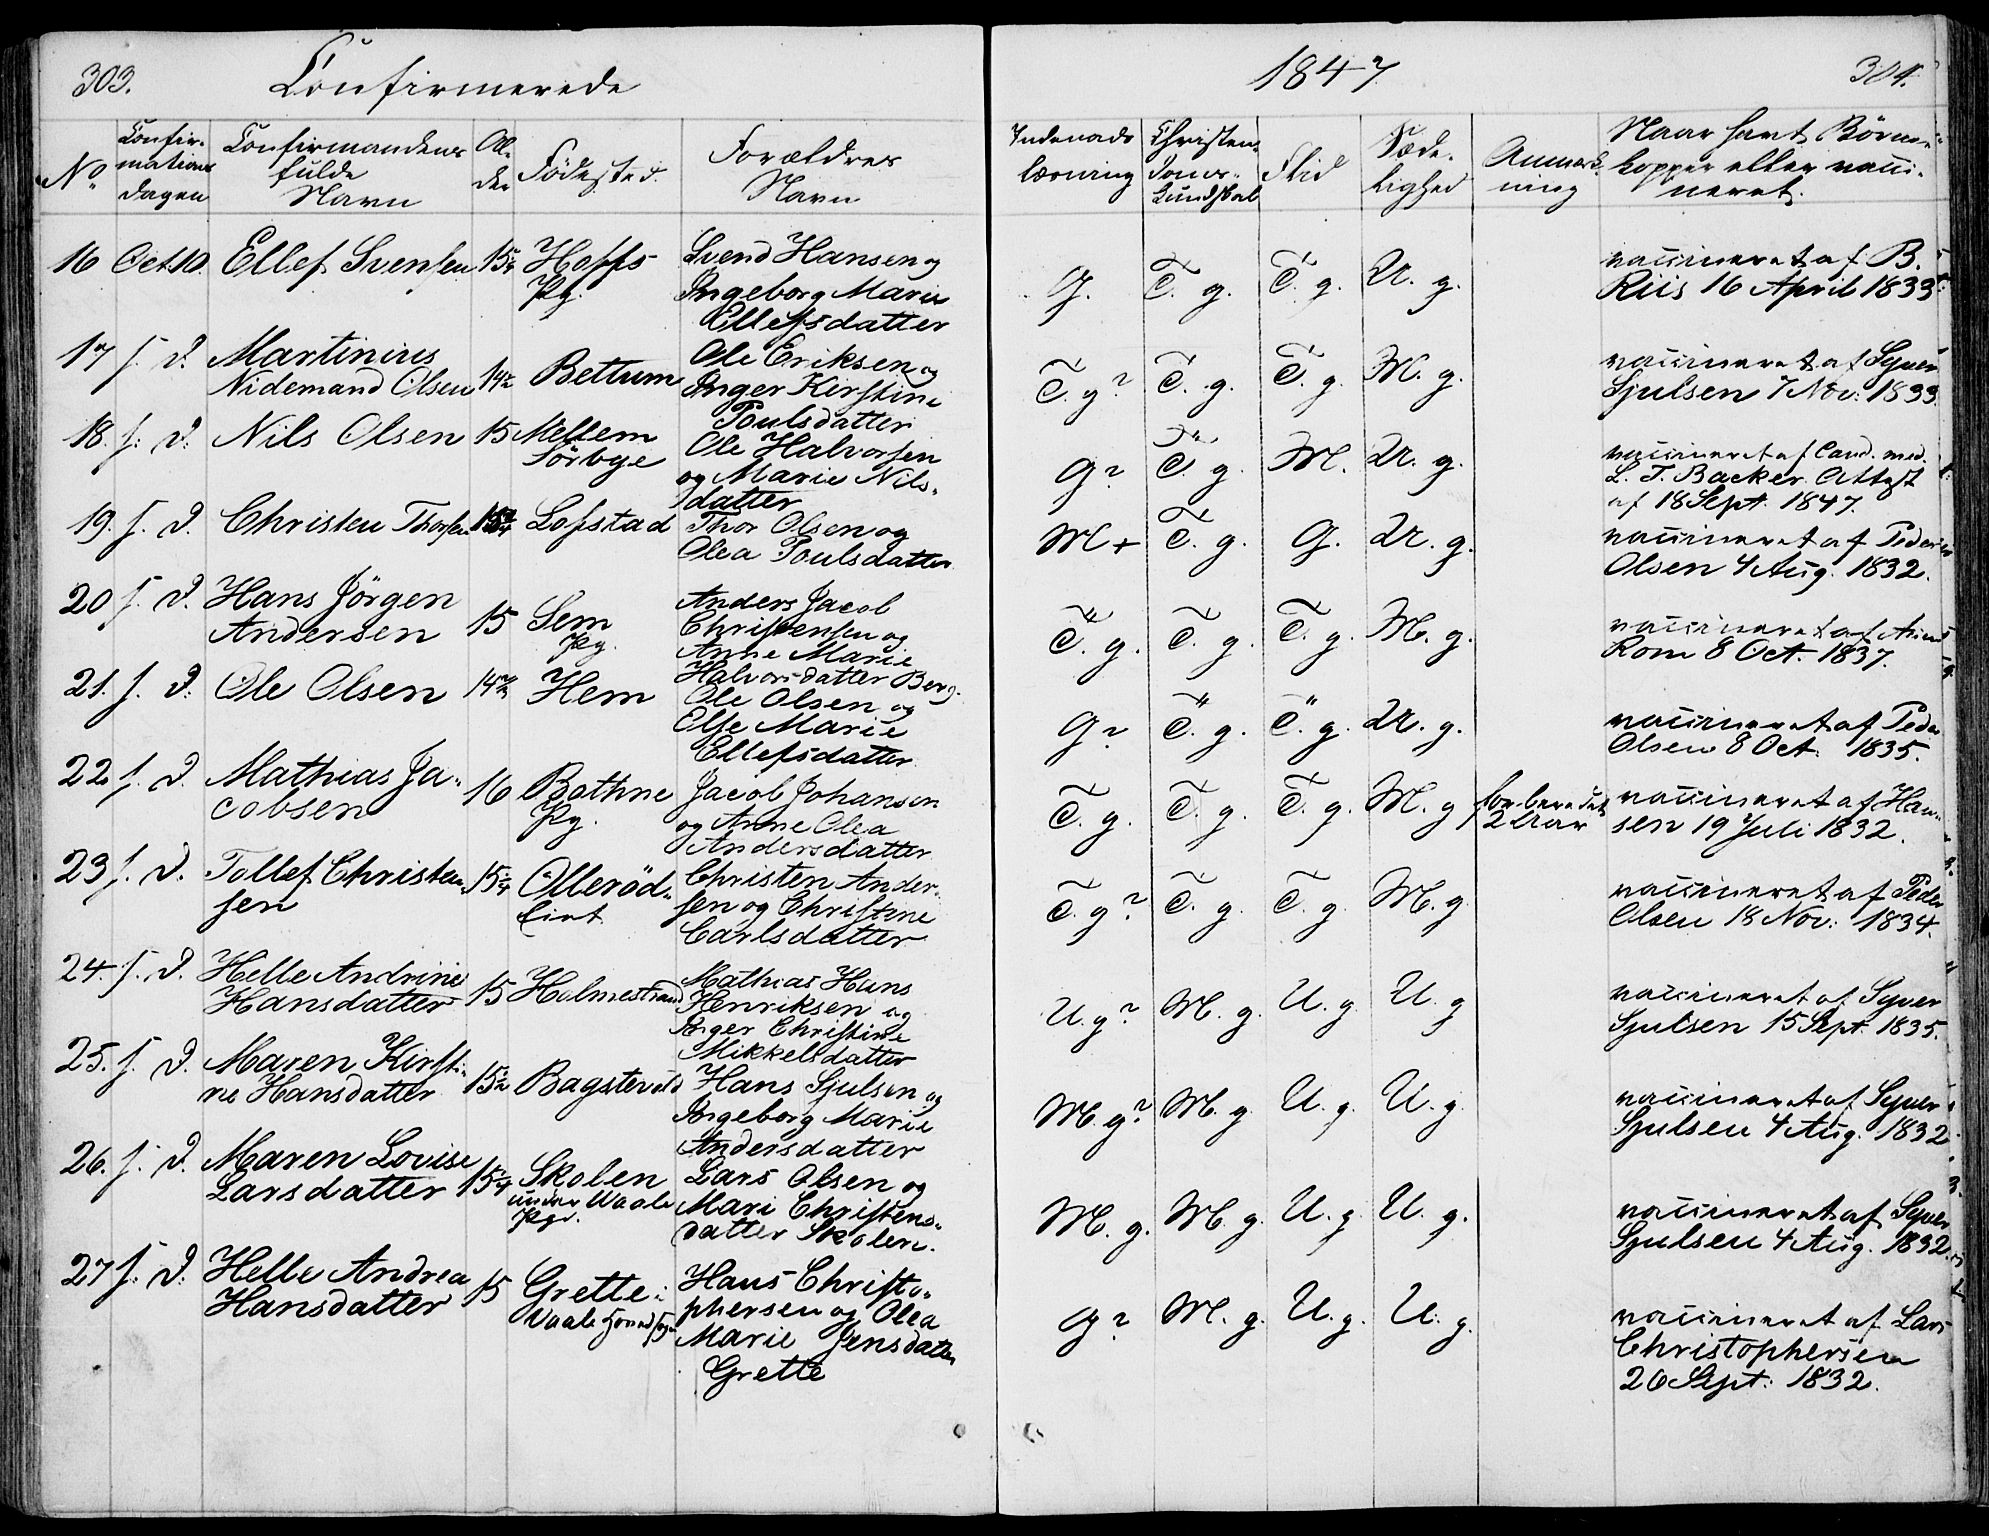 303.
Confirmerede
1847
304.
No
Confir-
mations
dagen
Confirmandens
fulde
Navn
Al-
der
Födested.
Forældres
Navn
Indenads
læsning
Christen-
doms-
kundskab
Flid
Sæde-
lighed
Anmærk-
ning
Naar havt Börne-
kopper eller vacci-
neret.
16 Oct. 10. Ellef Svensen 15 1/4 Hoffs
Pg.
Svend Hansen og
Ingeborg Marie
Ellefsdatter
G. T. g. T. g. U. g.
vaccineret af B.
Riis 16 April 1833
17 s. D. Martinius
Nidemand Olsen 14 1/2 Bettum
Ole Eriksen og
Inger Kirstine
Poulsdatter
T. g? T. g. T. g. M. g.
vaccineret af Syver
Sjulsen 7 Nov: 1833.
18. s. D. Nils Olsen 15 Mellem
Sörbye
Ole Halvorsen
og Marie Nils-
datter
G? T. g. M. U. g.
vaccineret af Cand. med.
L. T. Backer Attest
af 18 Sept. 1847.
19. s. D. Christen Thorsen Lofstad
Thor Olsen og
Olea Poulsdatter
M+ T. g. G. U. g.
vaccineret af Peder
Olsen 4 Aug. 1832.
20 s. D. Hans Jörgen
Andersen 15 Sem
Pg.
Anders Jacob
Christensen og
Anne Marie
Halvorsdatter Berg.
T. g. T. g. T. g. M. g.
vaccineret af
Rom 8 Oct. 1837.
21. s. D. Ole Olsen 14 1/2 Hem
Ole Olsen og
Else Marie
Ellefsdatter
G? T. g. T. g. U. g.
vaccineret af Peder
Olsen 8 Oct. 1835.
22 s. D. Mathias Ja-
cobsen 16 Bothne
Pg.
Jacob Johansen
og Anne Olea
Andersdatter
T. g. T. g. T. g. M. g
forberedet
2 Aar
vaccineret af Han-
sen 19 Juli 1832.
23 s. D. Tollef Christen-
sen 15 1/4 Olleröd-
eiet
Christen Ander-
sen og Christine
Carlsdatter
T. g? T. g. T. g. M. g.
vaccineret af Peder
Olsen 18 Nov: 1834.
24. s. D. Helle Andrine
Hansdatter 15 Holmestrand
Mathias Hans
Henriksen og
Inger Christine
Mikkelsdatter
U. g? M. g. U. g. U. g
vaccineret af Syver
Sjulsen 15 Sept. 1835.
25. s. D. Maren Kirsti-
ne Hansdatter 15 1/2 Bagstevold
Hans Sjulsen og
Ingeborg Marie
Andersdatter
M. g? M. g. U. g. U. g.
vaccineret af Syver
Sjulsen 4 Aug. 1832
26. s. D. Maren Lovise
Larsdatter 15 1/4 Skolen
under Waale
Pgd.
Lars Olsen og
Mari Christens-
datter Skolen.
M. g. M. g. U. g. U. g.
vaccineret af Syver
Sjulsen 4 Aug. 1832.
27 s. D. Helle Andrea
Hansdatter 15 Grette i
Waale
Hans Christo-
phersen og Olea
Marie Jensdatter
Grette
G? M. g. U. g. U. g.
vaccineret af Lars
Christophersen
26 Sept: 1832.